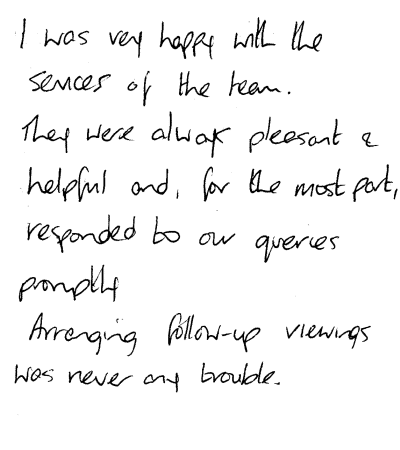 I was very happy with the
services of the team.
They were always pleasant &
helpful and, for the most part,
responded to our queries
promptly
Arranging follow-up viewings
was never any trouble.